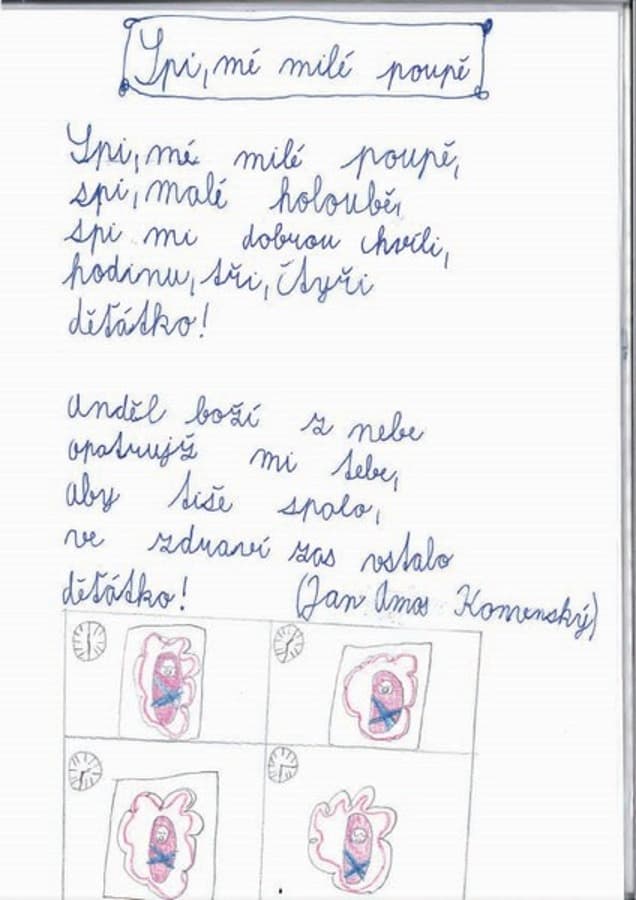 Spi, mé milé poupě
Spi, mé milé poupě,
spi, malé holoubě,
spi mi dobrou chvíli,
hodinu, tři, čtyři
děťátko!
Anděl boží z nebe
opatrujž mi tebe,
aby tiše spalo,
ve zdraví zas vstalo
děťátko! (Jan Amos Komenský)